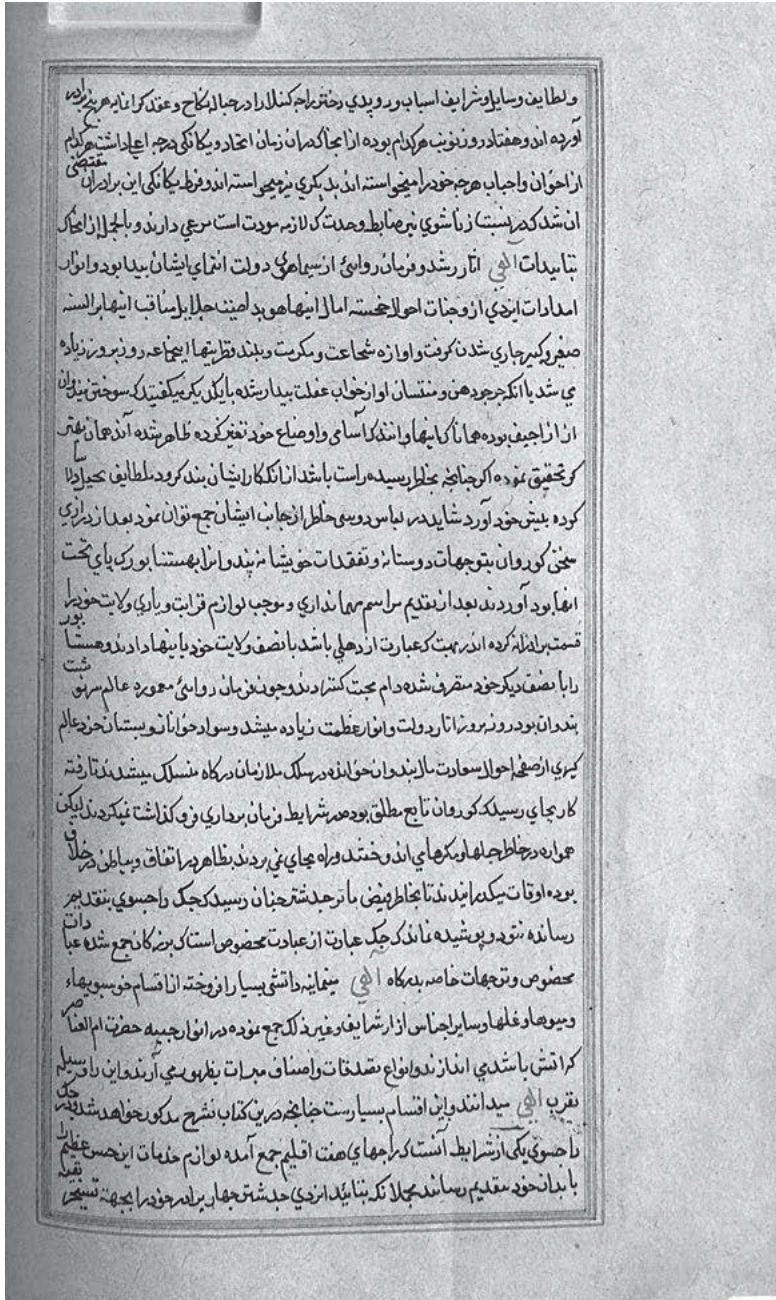 ولطایف وسایل و شرایف اسباب دروپدی دختر راجه کنپلا را در حباله نکاح و عقد کرانمایه هر پنج برادر
آورده اند و هفتاد روز نوبت هرکدام بوده از انجا که دران زمان اتحاد و یکانکی درجه اعلی داشت هرکدام
از اخوان و احباب هرچه خود را میخواسته اند بدیکری نیز میخواسته اند و فرط یکانکی این برادران مقتضی
ان شد که در نسبت زناشوی نیز ضابط وحدت که لازمه مودت است مرعی دارند و بالجمله از انجا که
بتاییدات الهی اثار رشد و فرمان روائی از سیماهای دولت انتمای ایشان پیدا بود و انوار
امدادات ایزدی از وجنات احوال خجسته امال اینها هویدا صیت جلایل مناقب اینها بر السنه
صغیر و کبیر جاری شدن کرفت و اوازه شجاعت و مکرمت و بلند فطرتیها اینجماعه روز بروز زیاده
می شد با انکه جرجودهن و منتسبان او از خواب غفلت بیدار شده با یکدیکر میکفتند که سوختن پندوان
از اراجیف بوده همانا که اینها وانند که اسامی و اوضاع خود تغیر کرده ظاهر شده اند همان بهتر
که تحقیق نموده اکر چنانچه بخاطر رسیده راست باشد از انکه کار ایشان بند کرود بلطایف بحیل دلاسا
کرده پیش خود آورد شاید در لباس دوستی خاطر از جانب ایشان جمع توان نمود بعد از درازی
سخن کوروان بتوجهات دوستانه و تفقدات خویشانه پندوانرا بهستنا بور که پای تخت
انها بود آوردند بعد از تقدیم مراسم مهمانداری و موجب لوازم قرابت و یاری ولایت خود را
قسمت برادرانه کرده اندرپهت که عبارت از دهلی باشد با نصف ولایت خود باینها دادند و هستنا بور
را با نصف دیکر خود متصرف شده دام محبت کستردند و چون فرمان روائی معموره عالم سرنوشت
پندوان بود روز بروز اثار دولت و انوار عظمت زیاده میشد و سواد خوانان نویستان خرد عالم
کیری از صفحه احوال سعادت مال پندوان خوانده در سلک ملازمان درکاه منسلک میشدند تا رفته
کار بجای رسید که کوروان تابع مطلق بوده در شرایط فرمان برداری فروکذاشت نمیکردند لیکن
همواره در خاطر حیلها و مکرها می اندوختند و راه بجای نمی بردند بظاهر در اتفاق و بباطن در خلاف
بوده اوقات میکذرانیدند تا بخاطر فیض ماثر جدشتر چنان رسید که جک راجسوی بتقدیم
رسانده شود و پوشیده نماند که جک عبارت از عبادت مخصوص است که برهمکان جمع شده عبادات
مخصوص و توجهات خاصه بدرکاه الهی مینمایند و اتشی بسیار افروخته از اقسام خوشبویهاء
و میوها و غلها و سایر اجناس از ارشرایف و غیر ذلک جمع نموده در انوار جبیه حضرت ام العناصر
که اتش باشد می اندازند و انواع تصدقات و اصناف مبرات بظهور می آرند و این را وسیله
تقرب الهی میدانند و این اقسام بسیارست چنانچه درین کتاب بشرح مذکور خواهد شد و در جک
راجسوی یکی از شرایط آنست که راجهای هفت اقلیم جمع آمده لوازم خدمات این جشن عظیم را
با بدان خود بتقدیم رسانند مجملا که بتائید ایزدی جدشتر چهار برادر خود را بجهته تسخیر بقیه